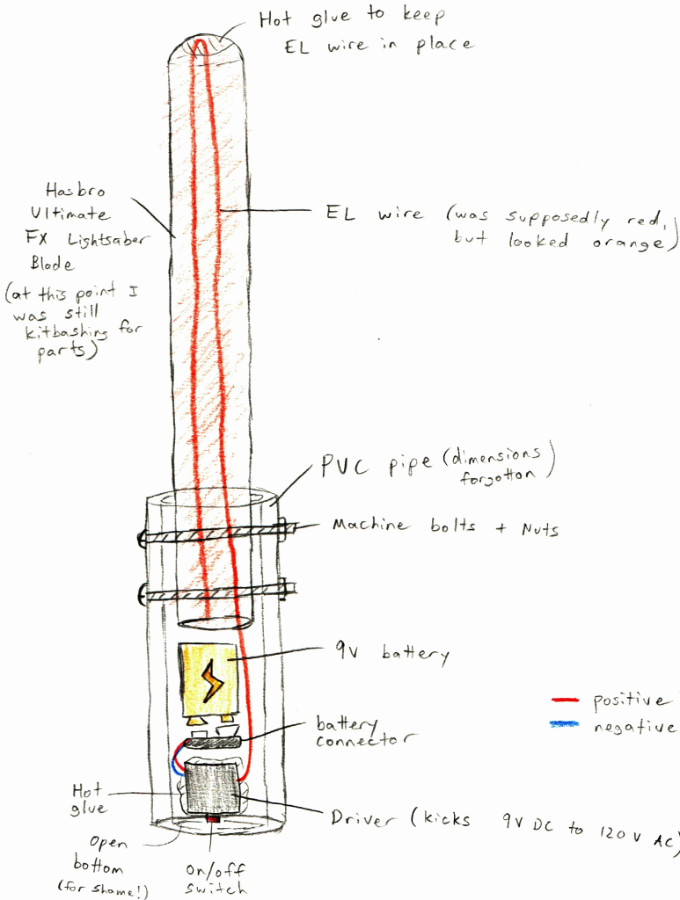 Hot glue to keep
EL wire in place
Hasbro
Ultimate
FX Lightsaber
Blade
(at this point I
was still
kitbashing for
parts)
EL wire (was supposedly red,
but looked orange)
PVC pipe (dimensions
forgotton)
Machine bolts + Nuts
9V battery
positive
negative
battery
connector
Hot
glue
Driver (kicks 9V DC to 120V AC)
Open
bottom
(for shame!)
on/off
switch